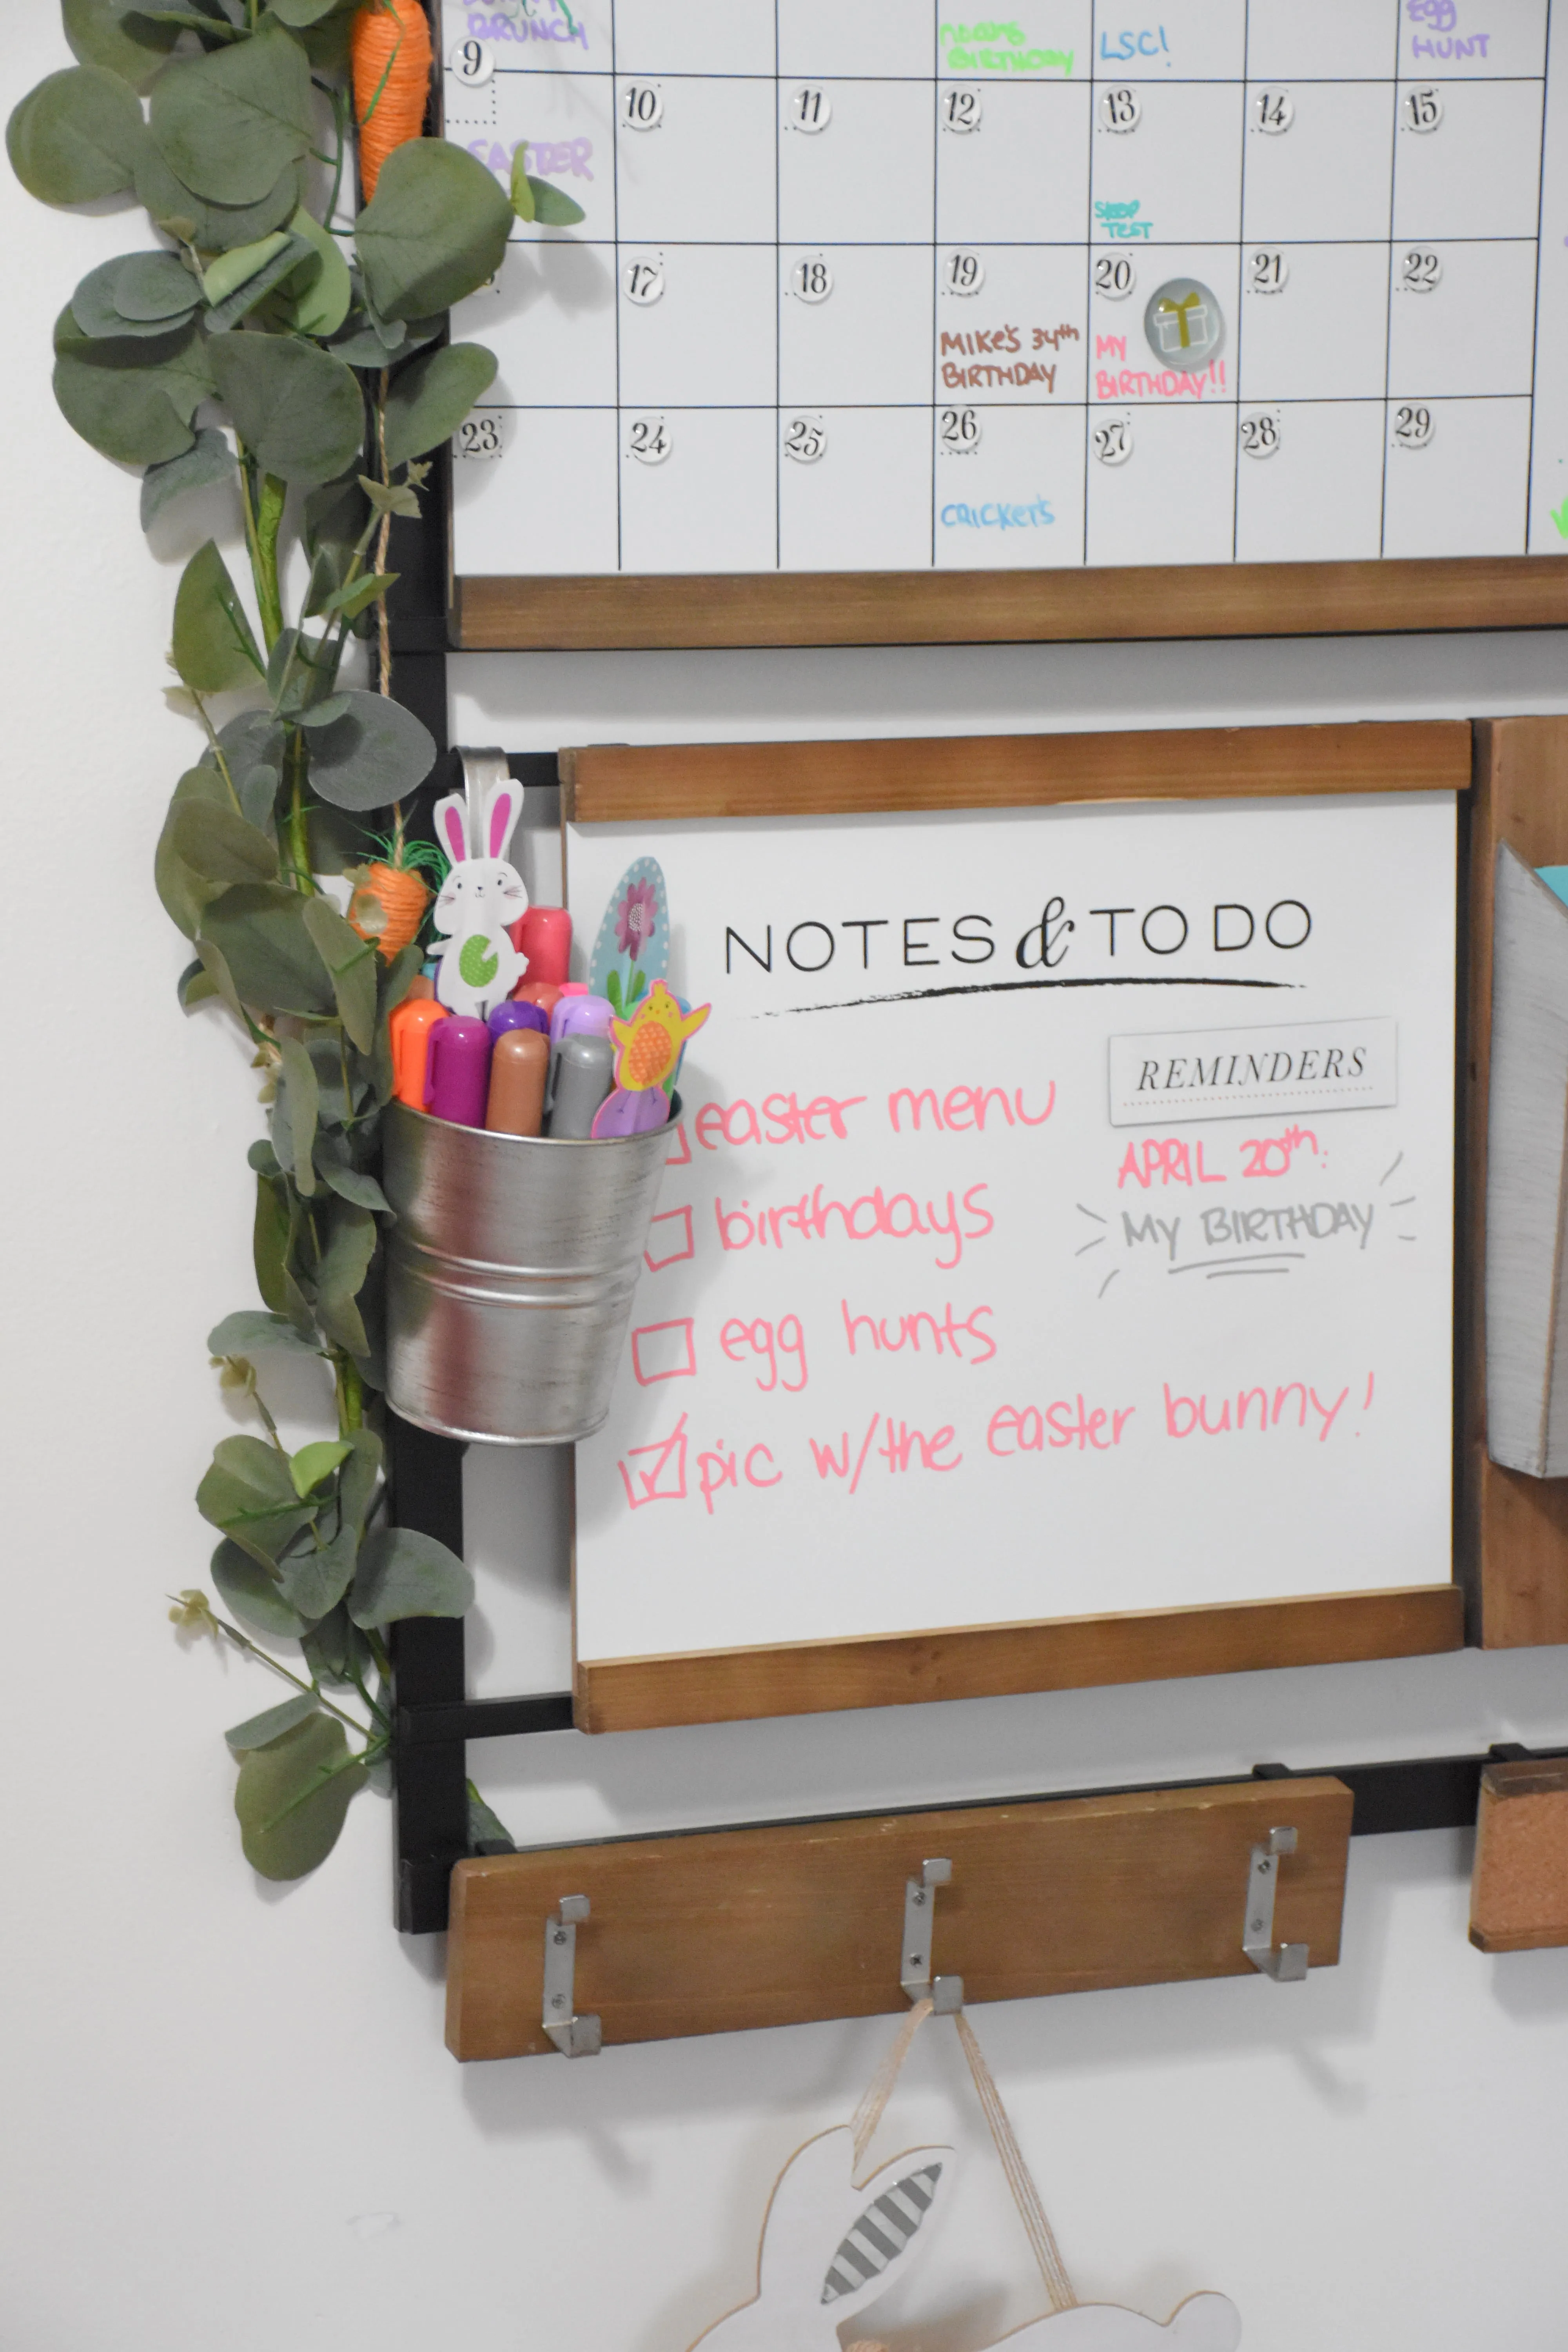 BRUNCH
BIRTHDAY
LSC!
EGG
HUNT
9
10
11
12
13
14
15
EASTER
TEST
17
18
19
20
21
22
MIKE'S 34th
BIRTHDAY
MY
BIRTHDAY!!
23
24
25
26
27
28
29
CRICKETS
NOTES & TO DO
REMINDERS
easter menu
birthdays
egg hunts
pic w/the easter bunny!
APRIL 20th:
MY BIRTHDAY